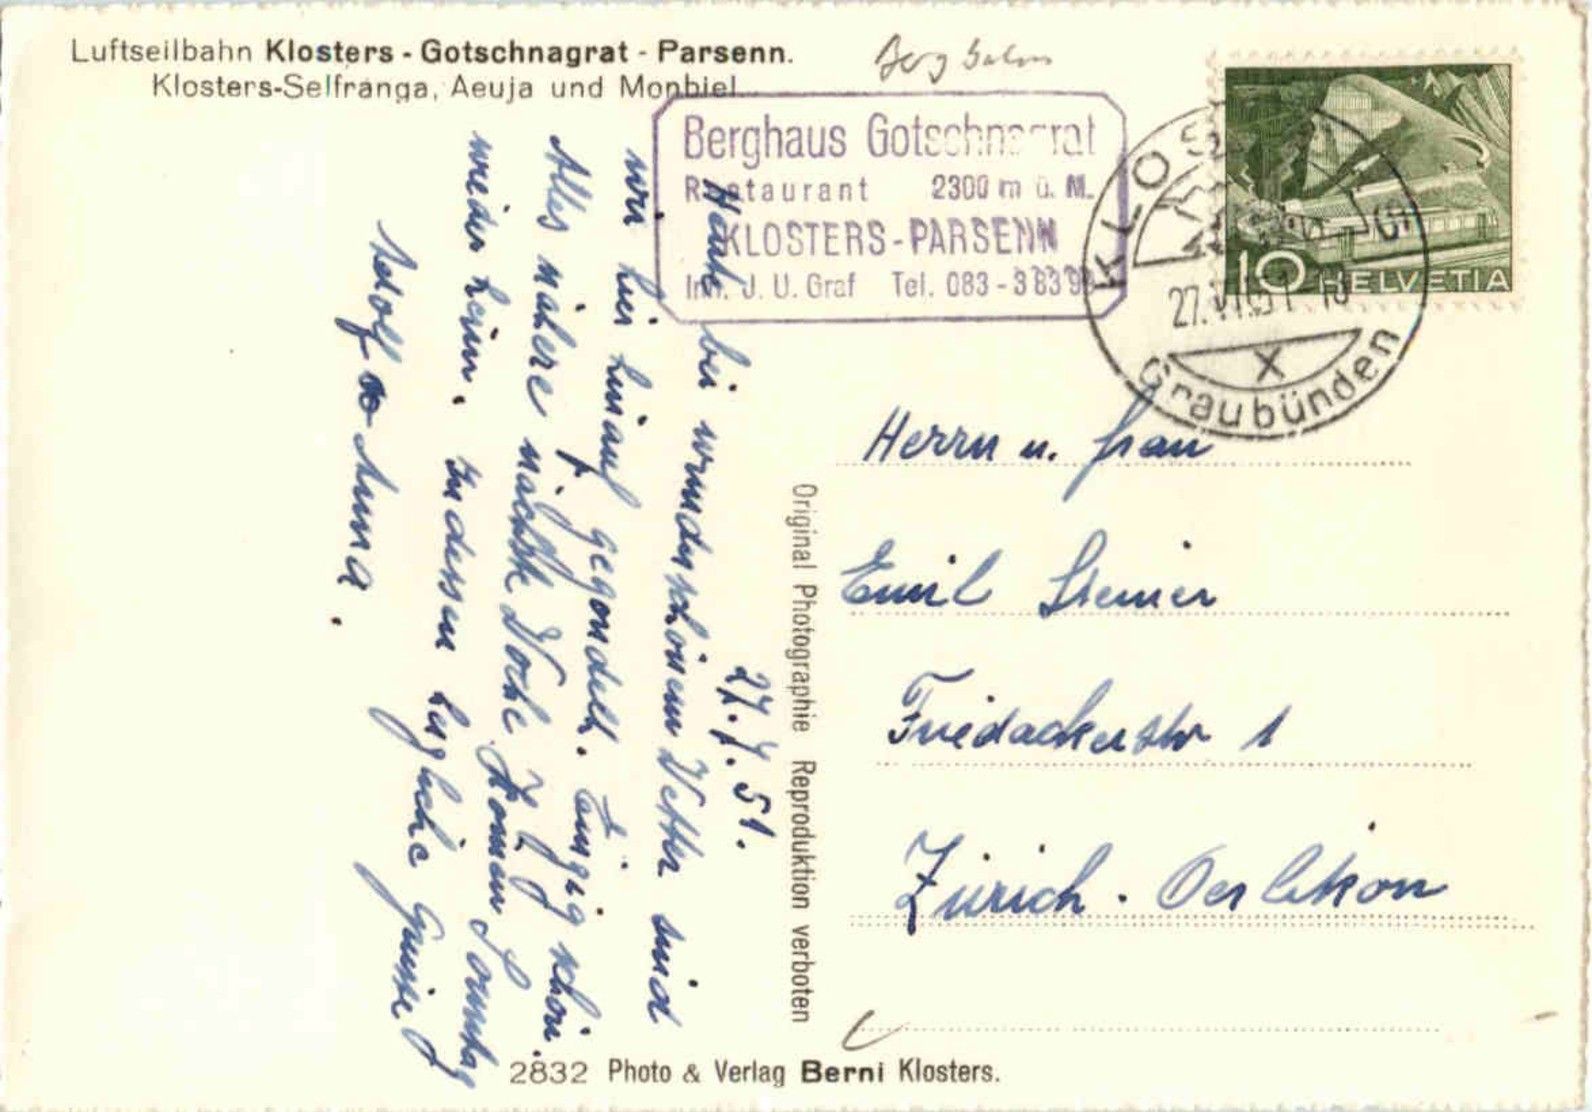 Luftseilbahn Klosters - Gotschnagrat - Parsenn.
Klosters-Selfranga, Aeuja und Monbiel.
Berg Bahn
Berghaus Gotschnagrat
Restaurant 2300 m ü. M.
KLOSTERS-PARSENN
Inh. J. U. Graf Tel. 083-3 83 9
KLOSTERS
27.VII.51
X
Graubünden
10 HELVETIA
27. 7. 51.
Heute bei wunderschönem Wetter sind
wir hier hinauf gegondelt. Einzig schön.
Alles nähere nächste Woche
wieder heim. Indessen herzliche Grüsse
Adolf Anna.
Herrn u. Frau
Emil Steiner
Friedackerstr 1
Zürich - Oerlikon
Original Photographie Reproduktion verboten
2832 Photo & Verlag Berni Klosters.